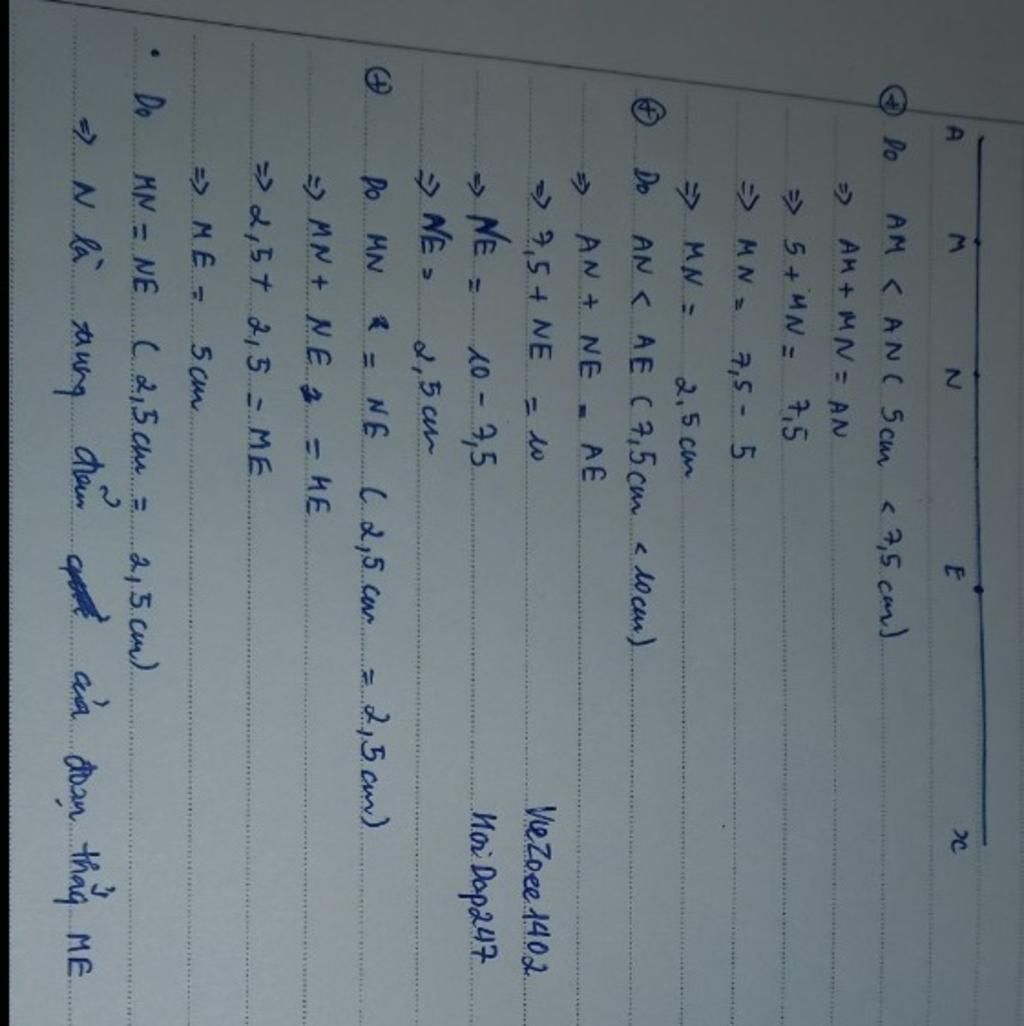 A M N E x
⊕ Do AM < AN ( 5cm < 7,5 cm)
=> AM + MN = AN
=> 5 + MN = 7,5
=> MN = 7,5 - 5
=> MN = 2,5 cm
⊕ Do AN < AE ( 7,5cm < 10cm)
=> AN + NE = AE
=> 7,5 + NE = 10
=> NE = 10 - 7,5
=> NE = 2,5 cm
VieZoee1402
HoiDap247
⊕ Do MN = NE ( 2,5 cm = 2,5 cm)
=> MN + NE = ME
=> 2,5 + 2,5 = ME
=> ME = 5cm
• Do MN = NE ( 2,5cm = 2,5 cm)
=> N là trung điểm của đoạn thẳg ME